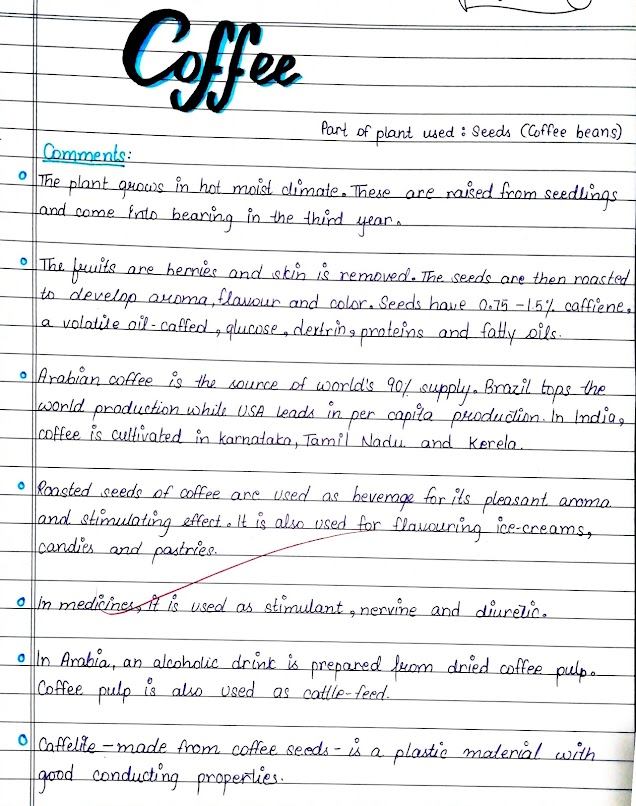 Coffee
Part of plant used : Seeds (Coffee beans)
Comments:
The plant grows in hot moist climate. These are raised from seedlings
and come into bearing in the third year.
The fruits are berries and skin is removed. The seeds are then roasted
to develop aroma, flavour and color. Seeds have 0.75 - 1.5% caffiene,
a volatile oil - caffed, glucose, dextrin, proteins and fatty oils.
Arabian coffee is the source of world's 90% supply. Brazil tops the
world production while USA leads in per capita production. In India,
coffee is cultivated in karnataka, Tamil Nadu and Kerela.
Roasted seeds of coffee are used as beverage for its pleasant aroma
and stimulating effect. It is also used for flavouring ice-creams,
candies and pastries.
In medicines, it is used as stimulant, nervine and diuretic.
In Arabia, an alcoholic drink is prepared from dried coffee pulp.
Coffee pulp is also used as cattle-feed.
Caffelite - made from coffee seeds - is a plastic material with
good conducting properties.